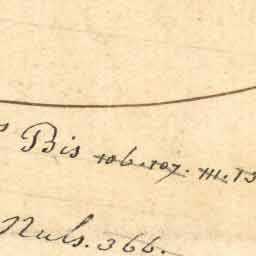 Bis 106.107. m. 13
Nuls. 366.